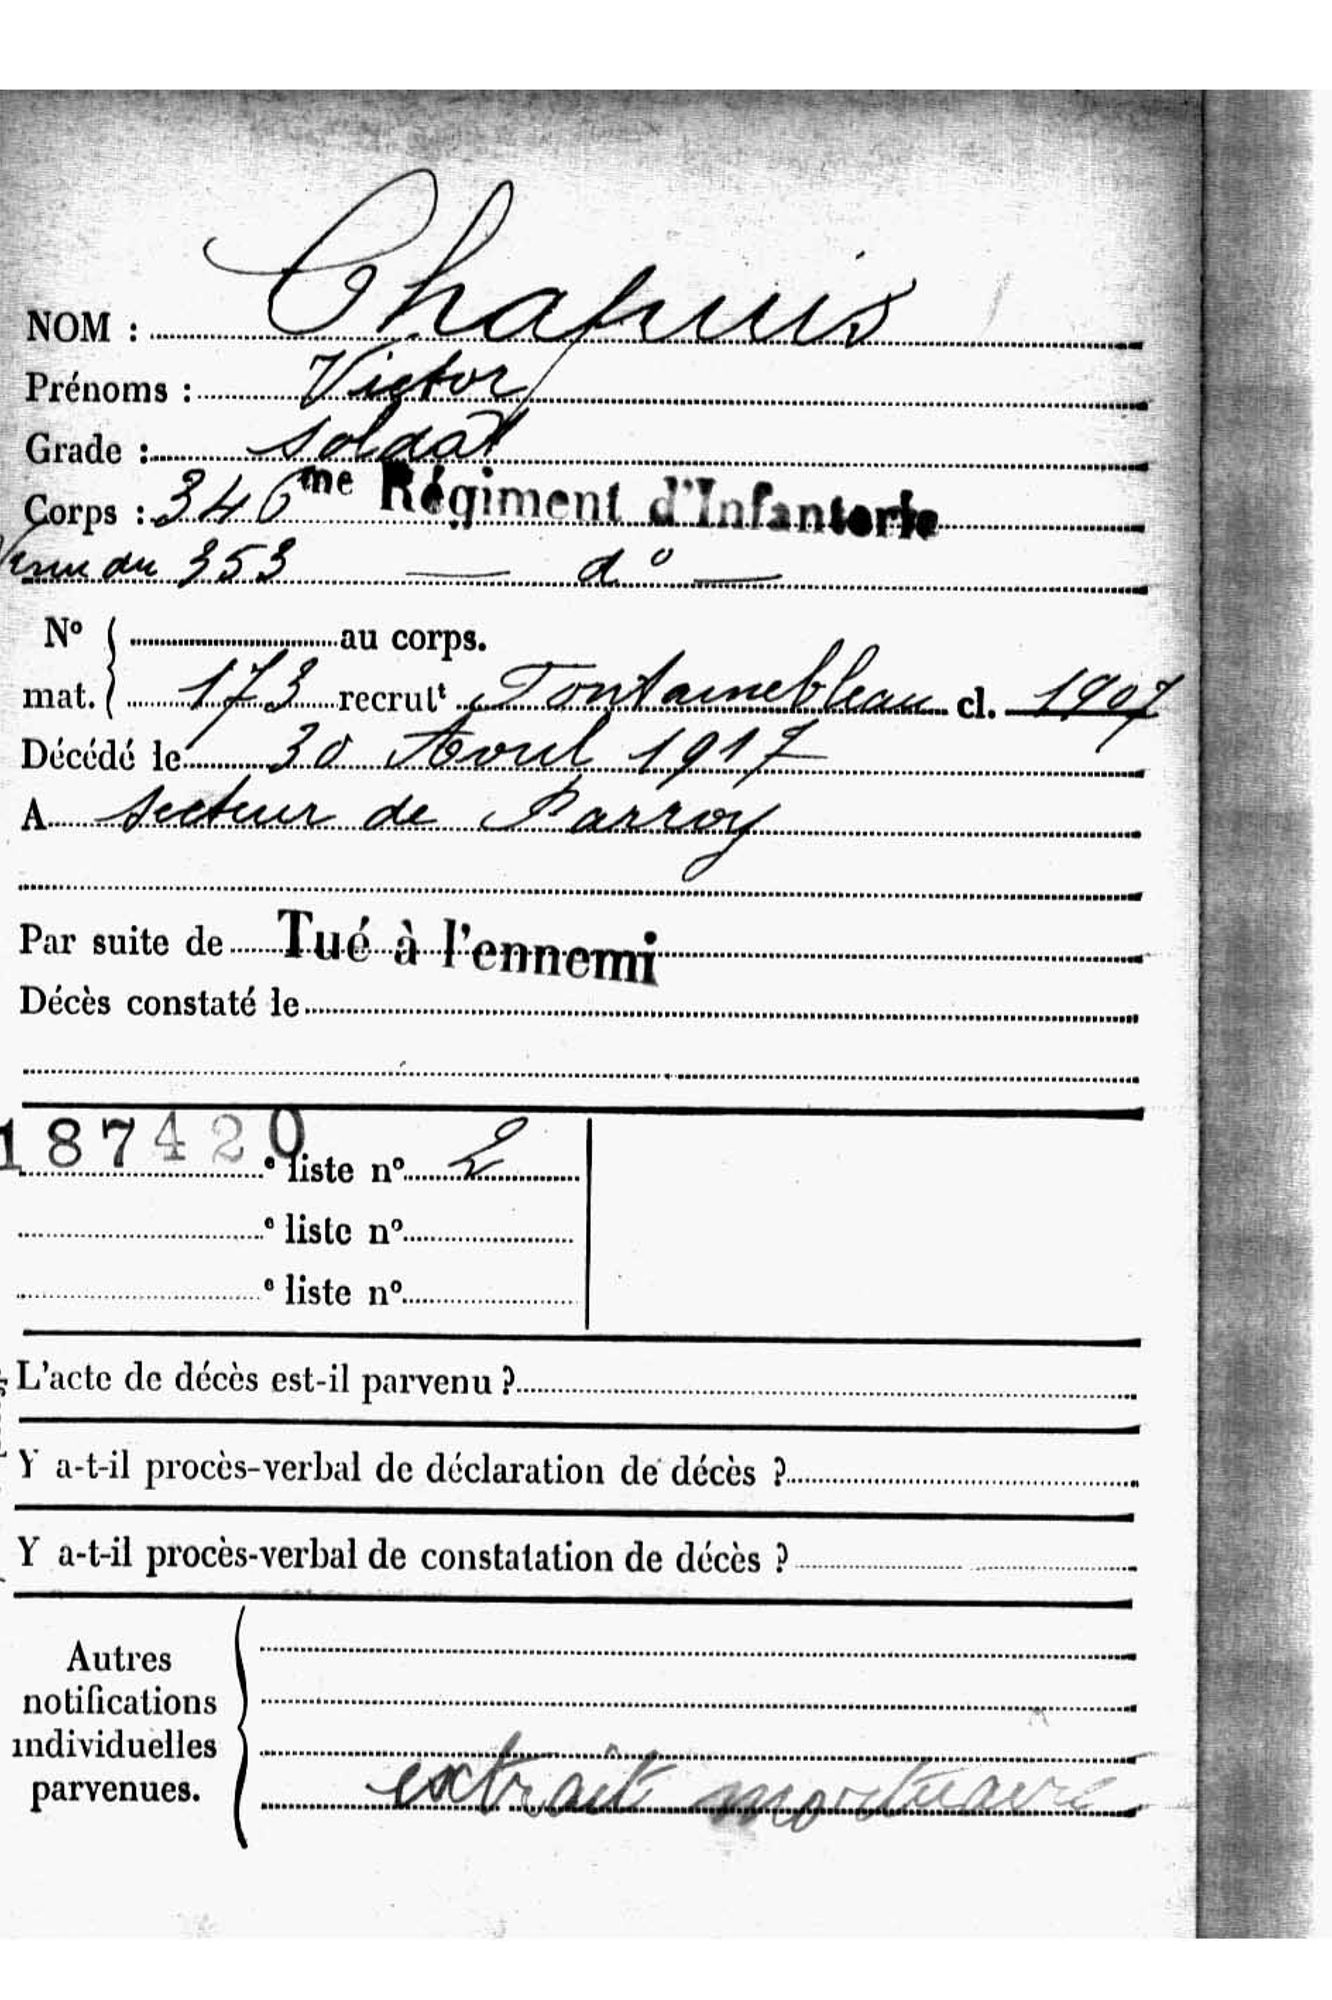 NOM : Chapuis
Prénoms : Victor
Grade : Soldat
Corps : 346me Régiment d'Infanterie
Venu du 353 — d° —
N° au corps.
mat. 173 recrult Fontainebleau cl. 1907
Décédé le 30 Avril 1917
A secteur de Parroy
Par suite de Tué à l'ennemi
Décès constaté le
187420 e liste n° 2
e liste n°
e liste n°
L'acte de décès est-il parvenu ?
Y a-t-il procès-verbal de déclaration de décès ?
Y a-t-il procès-verbal de constatation de décès ?
Autres
notifications
individuelles
parvenues.
extrait mortuaire